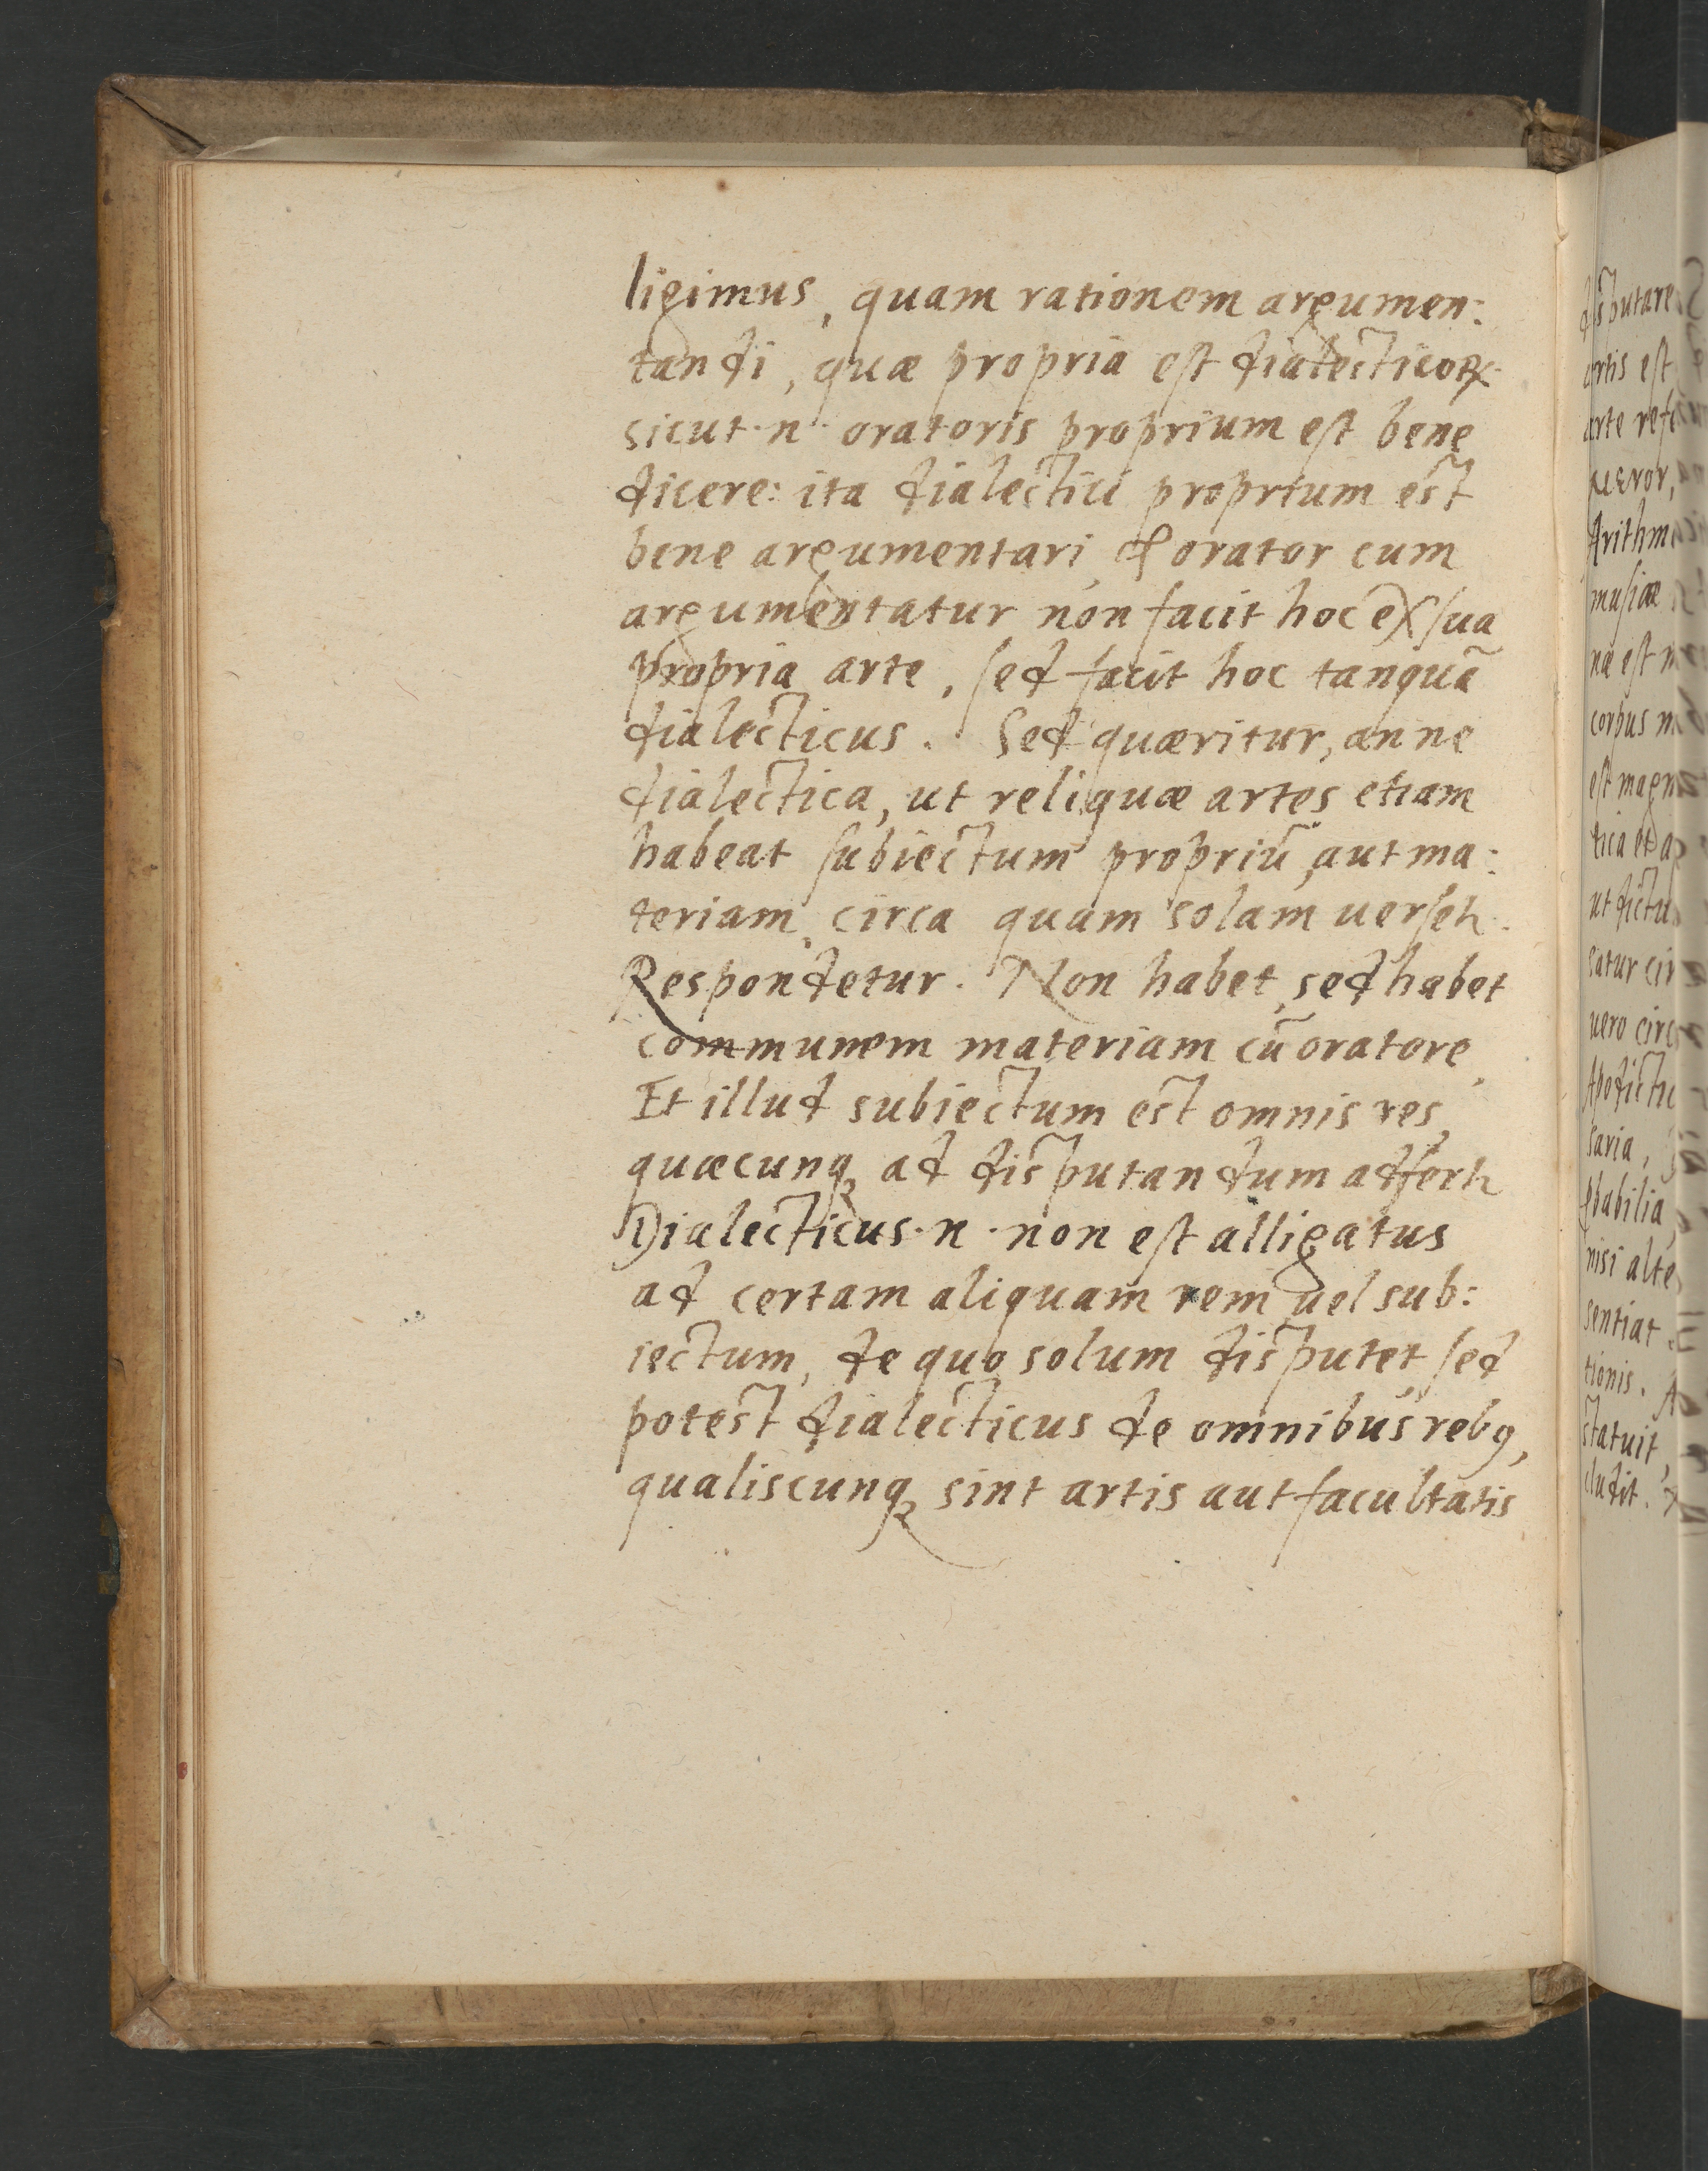 ligimus, quam rationem argumen:
tandi, quæ propria est dialecticoꝝ
sicut·n· oratoris proprium est bene
dicere: ita dialectici proprium est
bene argumentari, & orator cum
argumentatur non facit hoc ex sua
propria arte, sed facit hoc tanquã
dialecticus. Sed quæritur, an ne
dialectica, ut reliquæ artes etiam
habeat subiectum propriũ, aut ma:
teriam, circa quam solam
Respondetur. Non habet, sed habet
communem materiam cũ oratore,
Et illud subiectum est omnis res,
quæcunqꝫ ad disputandum
Dialecticus·n·non est alligatus
ad certam aliquam rem uel sub:
iectum, de quo solum disputet, sed
potest dialecticus de omnibus rebꝯ,
qualiscunqꝫ sint artis aut facultatis
disputare
artis est
musicæ
uero circ
nisi alte
sentiat
tionis.
statuit,
cludit.